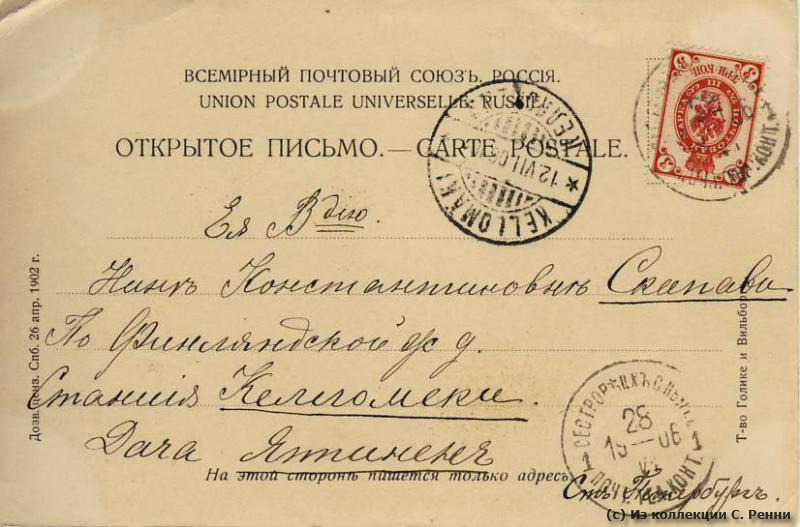 ВСЕМІРНЫЙ ПОЧТОВЫЙ СОЮЗЪ. РОССІЯ.
UNION POSTALE UNIVERSELLE. RUSSIE.
ОТКРЫТОЕ ПИСЬМО.—CARTE POSTALE.
KELLOMÄKI
12.VII.06
3
3
3
3
Ея Вдію.
Нинѣ Константиновнѣ Скапави
По Финляндской ж. д.
Станція Келломеки.
Дача Ятиненъ
На этой сторонѣ пишется только адресъ.
Стъ Петербургъ.
СЕСТРОРѢЦКЪ С.ПЕТ
28
15—06
1 1
ПОЧТ. ТЕЛ. КОНТ.
Дозв. ценз. Спб. 26 апр. 1902 г.
Т-во Голике и Вильборг
(c) Из коллекции С. Ренни